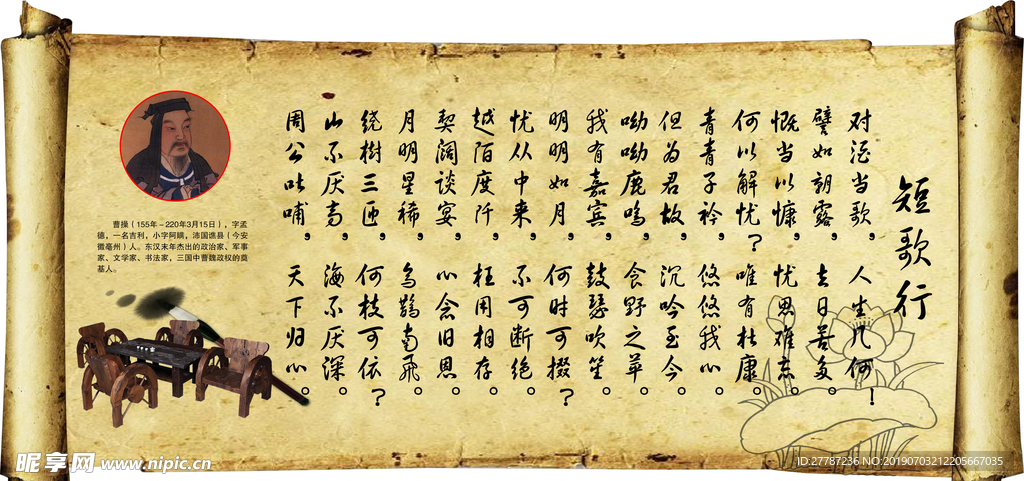 短歌行
对酒当歌，人生几何！
譬如朝露，去日苦多。
慨当以慷，忧思难忘。
何以解忧？唯有杜康。
青青子衿，悠悠我心。
但为君故，沉吟至今。
呦呦鹿鸣，食野之苹。
我有嘉宾，鼓瑟吹笙。
明明如月，何时可掇？
忧从中来，不可断绝。
越陌度阡，枉用相存。
契阔谈宴，心念旧恩。
月明星稀，乌鹊南飞。
绕树三匝，何枝可依？
山不厌高，海不厌深。
周公吐哺，天下归心。
曹操（155年－220年3月15日），字孟
德，一名吉利，小字阿瞒，沛国谯县（今安
徽亳州）人。东汉末年杰出的政治家、军事
家、文学家、书法家，三国中曹魏政权的奠
基人。
昵享网 www.nipic.cn
ID:27787236 NO:20190703212205667035